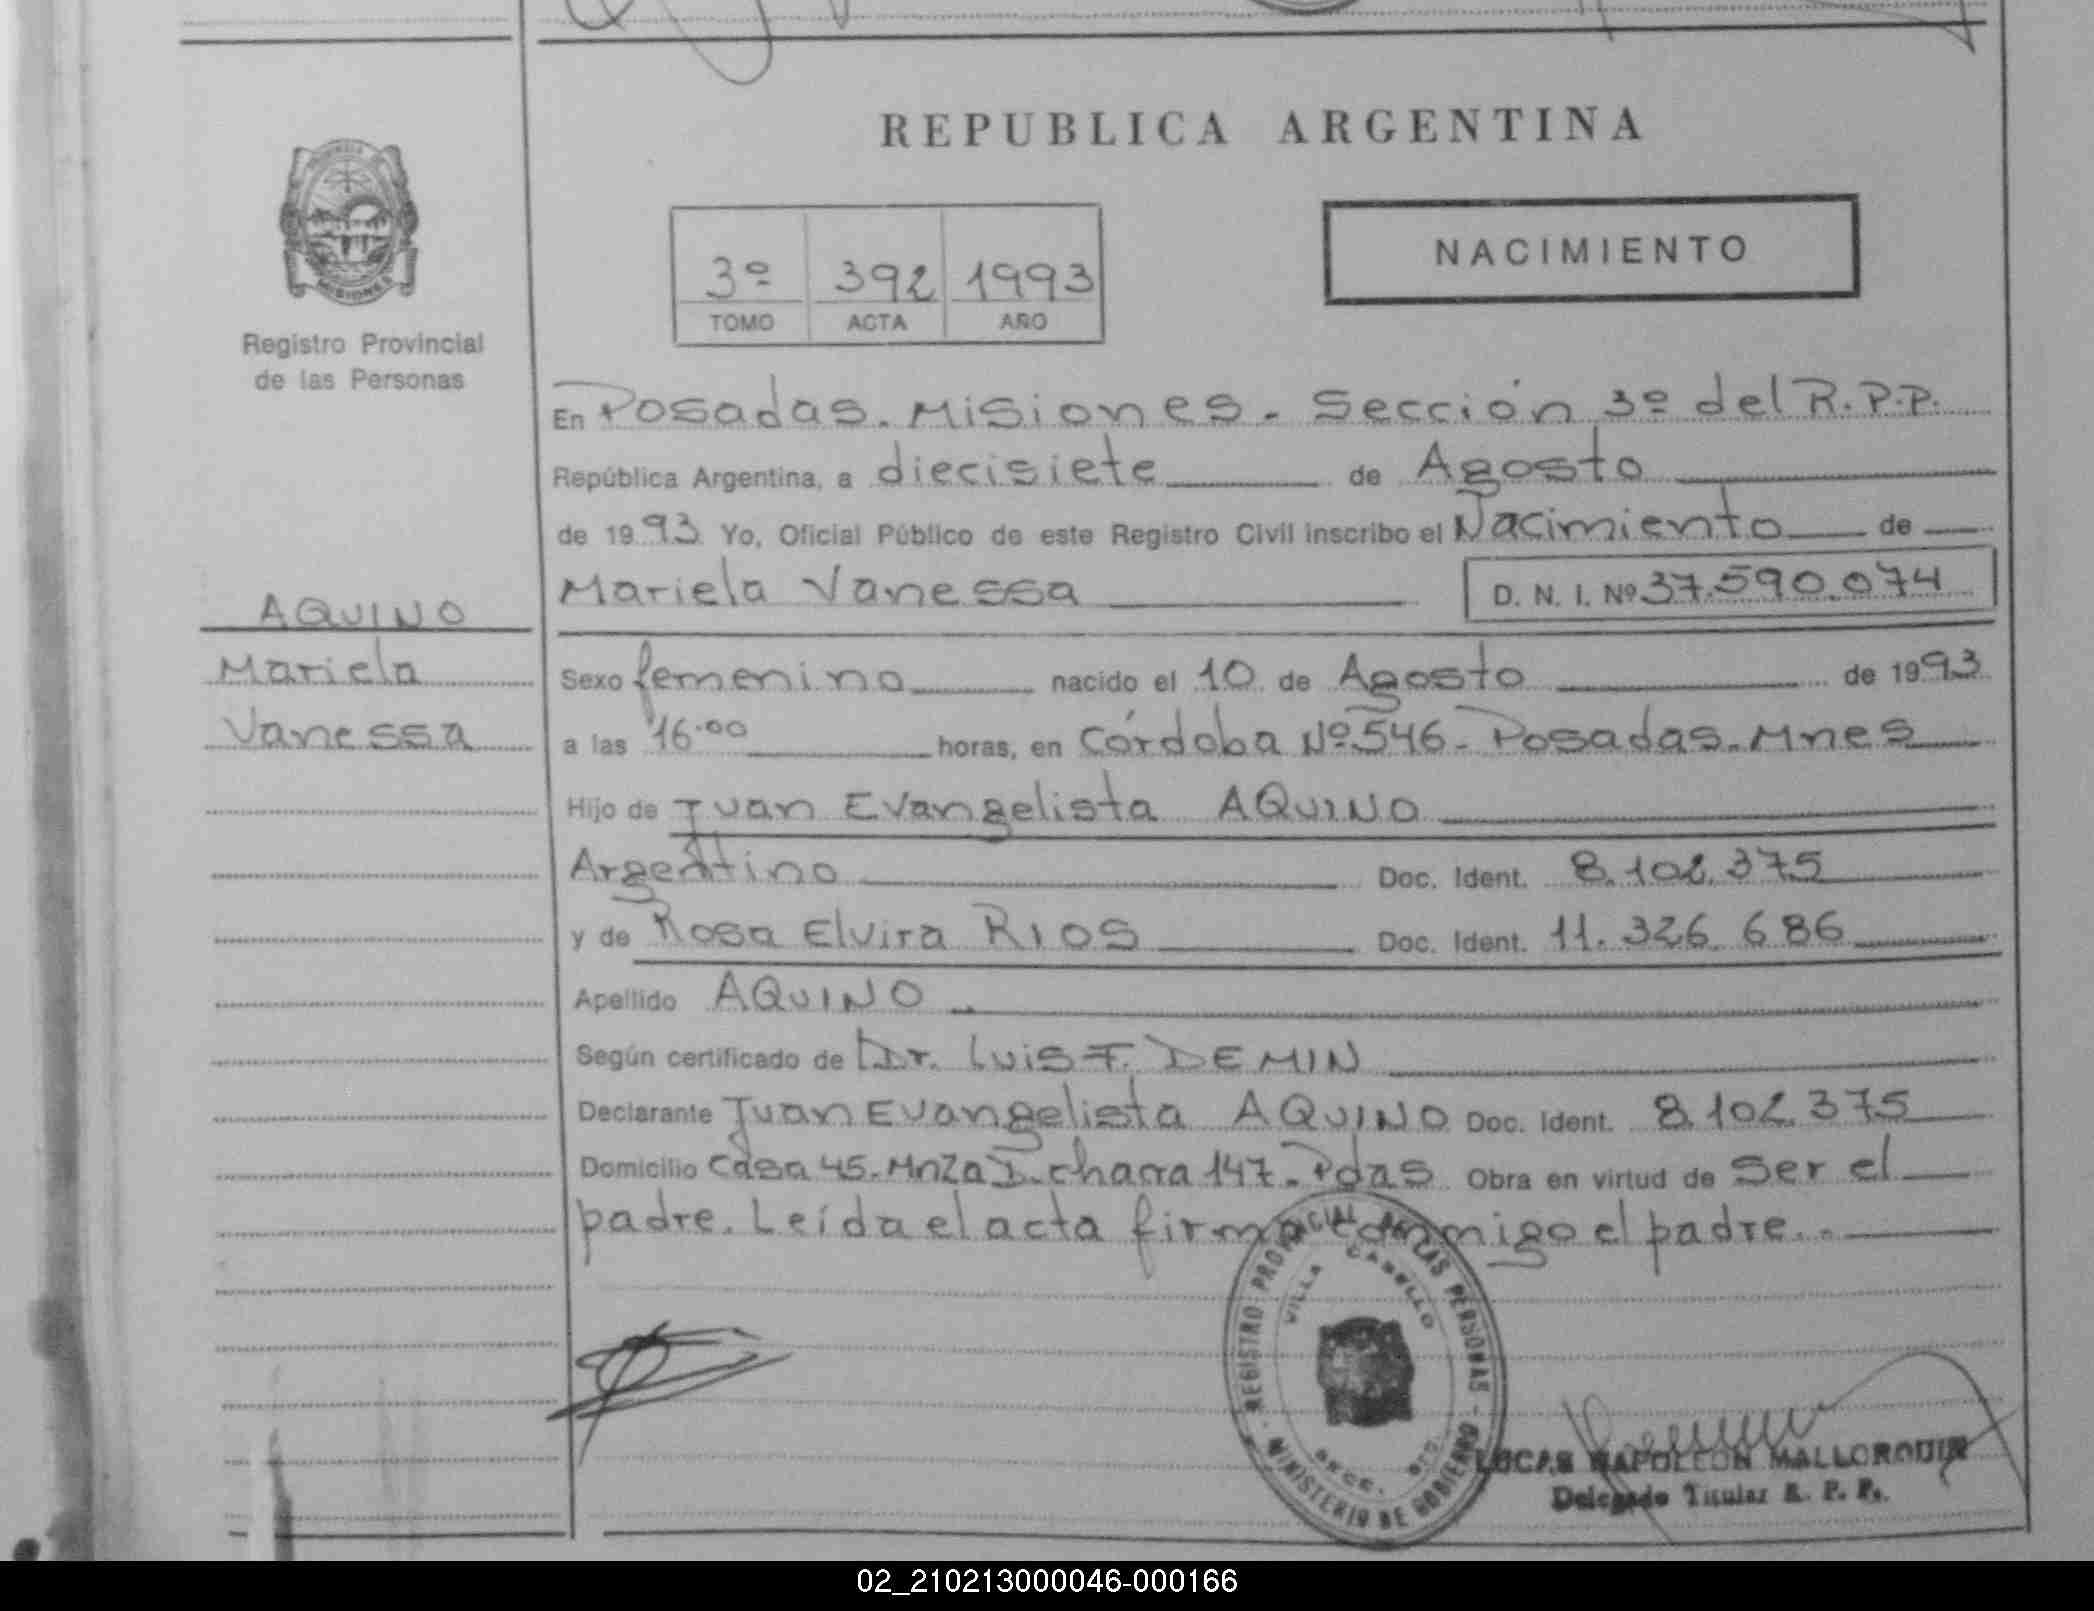 REPUBLICA ARGENTINA
MISIONES
Registro Provincial
de las Personas
3º 392 1993
TOMO ACTA AÑO
NACIMIENTO
En Posadas. Misiones. Sección 3º del R.P.P.
República Argentina, a diecisiete de Agosto
de 1993 Yo, Oficial Público de este Registro Civil inscribo el Nacimiento de
Mariela Vanessa D. N. I. Nº 37.590.074
AQUINO
Mariela
Vanessa
Sexo femenino nacido el 10 de Agosto de 1993
a las 16.00 horas, en Córdoba Nº 546. Posadas. Mnes
Hijo de Juan Evangelista AQUINO
Argentino Doc. Ident. 8.102.375
y de Rosa Elvira RIOS Doc. Ident. 11.326.686
Apellido AQUINO
Según certificado de Dr. Luis F. DEMIN
Declarante Juan Evangelista AQUINO Doc. Ident. 8.102.375
Domicilio Casa 45. Mnza I. chacra 147. Pdas Obra en virtud de ser el
padre. Leída el acta firma conmigo el padre..
REGISTRO PROVINCIAL DE LAS PERSONAS - MINISTERIO DE GOBIERNO
VILLA CABELLO
LUCAS NAPOLEON MALLORQUIN
Delegado Titular R. P. P.
02_210213000046-000166